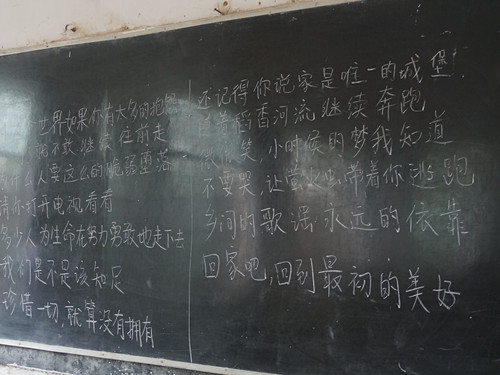 世界如果你有大多的
不敢继续往前走
什么人要这么的脆弱堕落
请你打开电视看看
多少人为生命在努力勇敢地走下去
我们是不是该知足
珍惜一切,就算没有拥有
还记得你说家是唯一的城堡
随着稻香河流继续奔跑
微微笑,小时候的梦我知道
不要哭,让萤火虫带着你逃跑
乡间的歌谣永远的依靠
回家吧,回到最初的美好